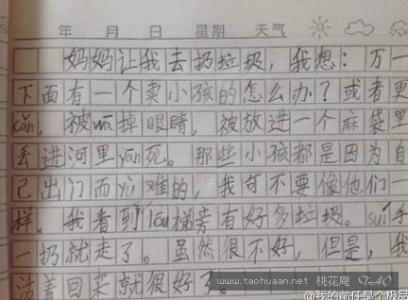 年 月 日 星期 天气
妈妈让我去扔垃圾，我想：万一
下面有一个卖小孩的怎么办？或者更
cǎn，被wā掉眼睛，被放进一个麻袋里
丢进河里yān死。那些小孩都是因为自
己出门而yù难的，我可不要像他们一
样。我看到lóu梯旁有好多垃圾。suí手
一扔就走了。虽然很不好，但是，我
活着回来就很好了。
www.taohuaan.net 桃花庵 TAO